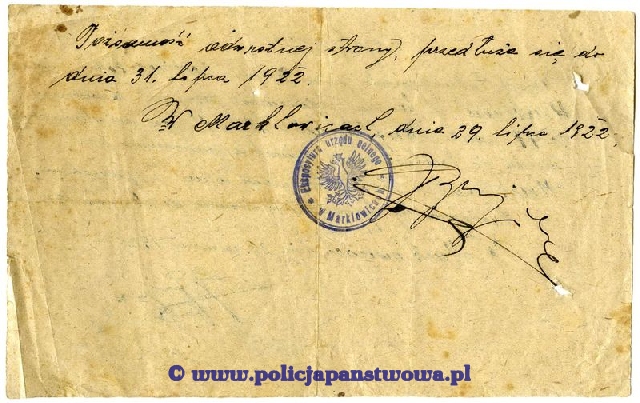 odwrotnej strony, przedłuża się do
dnia 31. lipca 1922.
W Marklowicach, dnia 29 lipca 1922.
Ekspozytura urzędu celnego
w Marklowicach
© www.policjapanstwowa.pl